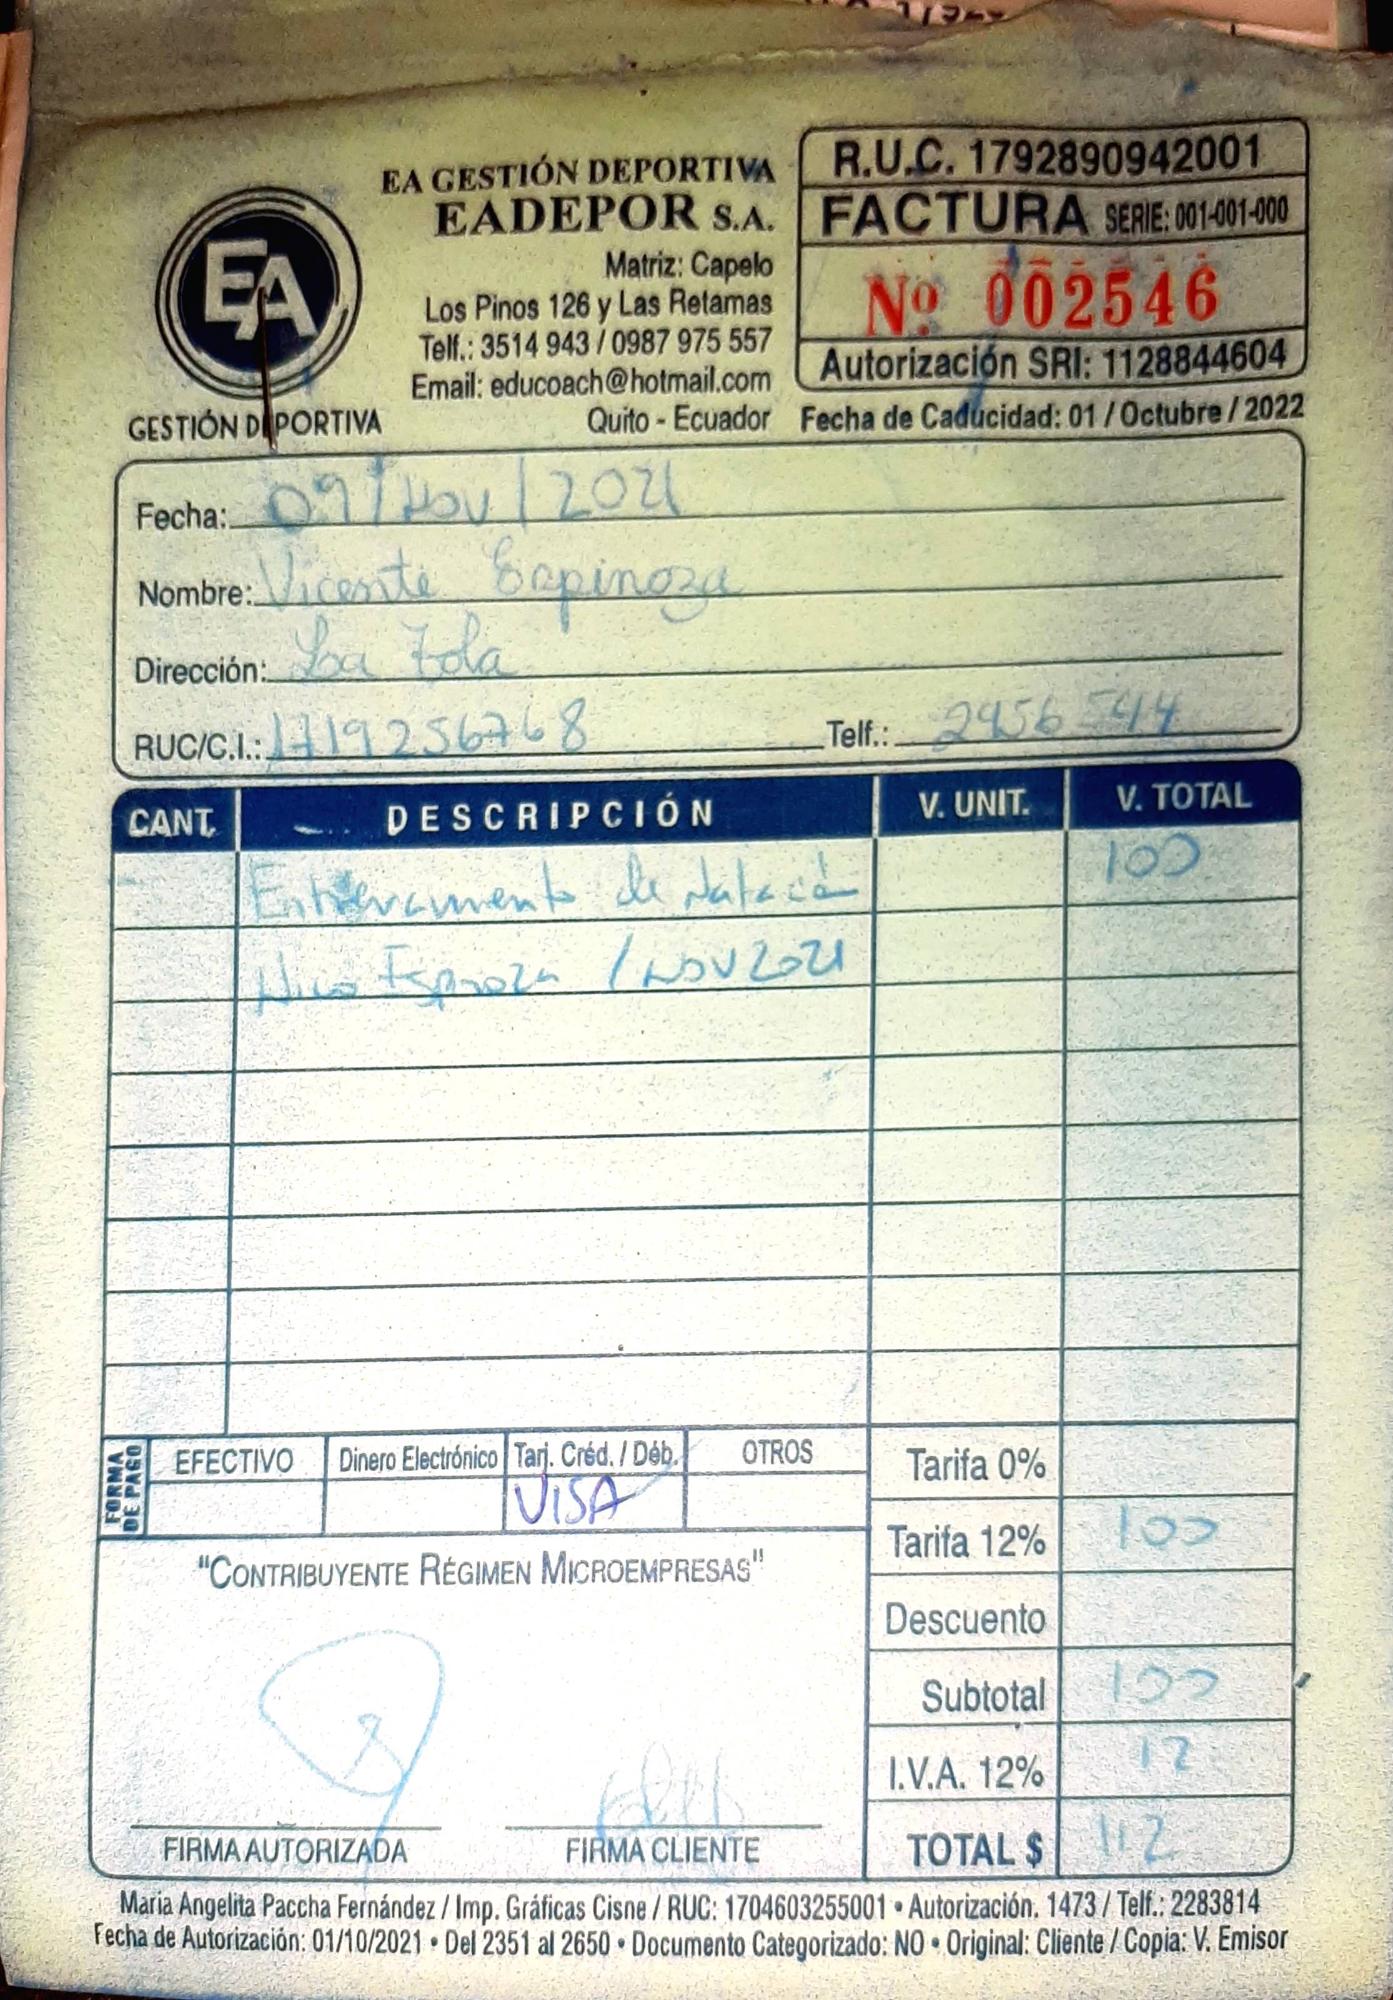 EA GESTIÓN DEPORTIVA
EADEPOR S.A.
Matriz: Capelo
Los Pinos 126 y Las Retamas
Telf.: 3514 943 / 0987 975 557
Email: educoach@hotmail.com
Quito - Ecuador
EA
GESTIÓN DEPORTIVA
R.U.C. 1792890942001
FACTURA SERIE: 001-001-000
Nº 002546
Autorización SRI: 1128844604
Fecha de Caducidad: 01 / Octubre / 2022
Fecha: 09 / Nov / 2021
Nombre: Vicente Espinoza
Dirección: La Tola
RUC/C.I.: 1719256768 Telf.: 2456-544
CANT. DESCRIPCIÓN V. UNIT. V. TOTAL
Entrenamiento de Natación 100
Nico Espinoza / Nov 2021
FORMA DE PAGO
EFECTIVO Dinero Electrónico Tarj. Créd. / Déb. OTROS
VISA
Tarifa 0%
Tarifa 12% 100
Descuento
Subtotal 100
I.V.A. 12% 12
TOTAL $ 112
"CONTRIBUYENTE RÉGIMEN MICROEMPRESAS"
FIRMA AUTORIZADA FIRMA CLIENTE
Maria Angelita Paccha Fernández / Imp. Gráficas Cisne / RUC: 1704603255001 • Autorización. 1473 / Telf.: 2283814
Fecha de Autorización: 01/10/2021 • Del 2351 al 2650 • Documento Categorizado: NO • Original: Cliente / Copia: V. Emisor